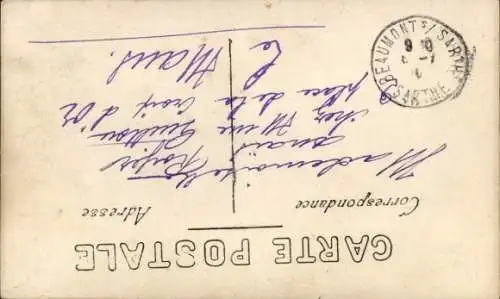 CARTE POSTALE
Correspondance
Adresse
Mademoiselle
chez Mme Guitton
place de la Croix d'Or
Le Mans.
BEAUMONT S/ SARTHE
SARTHE